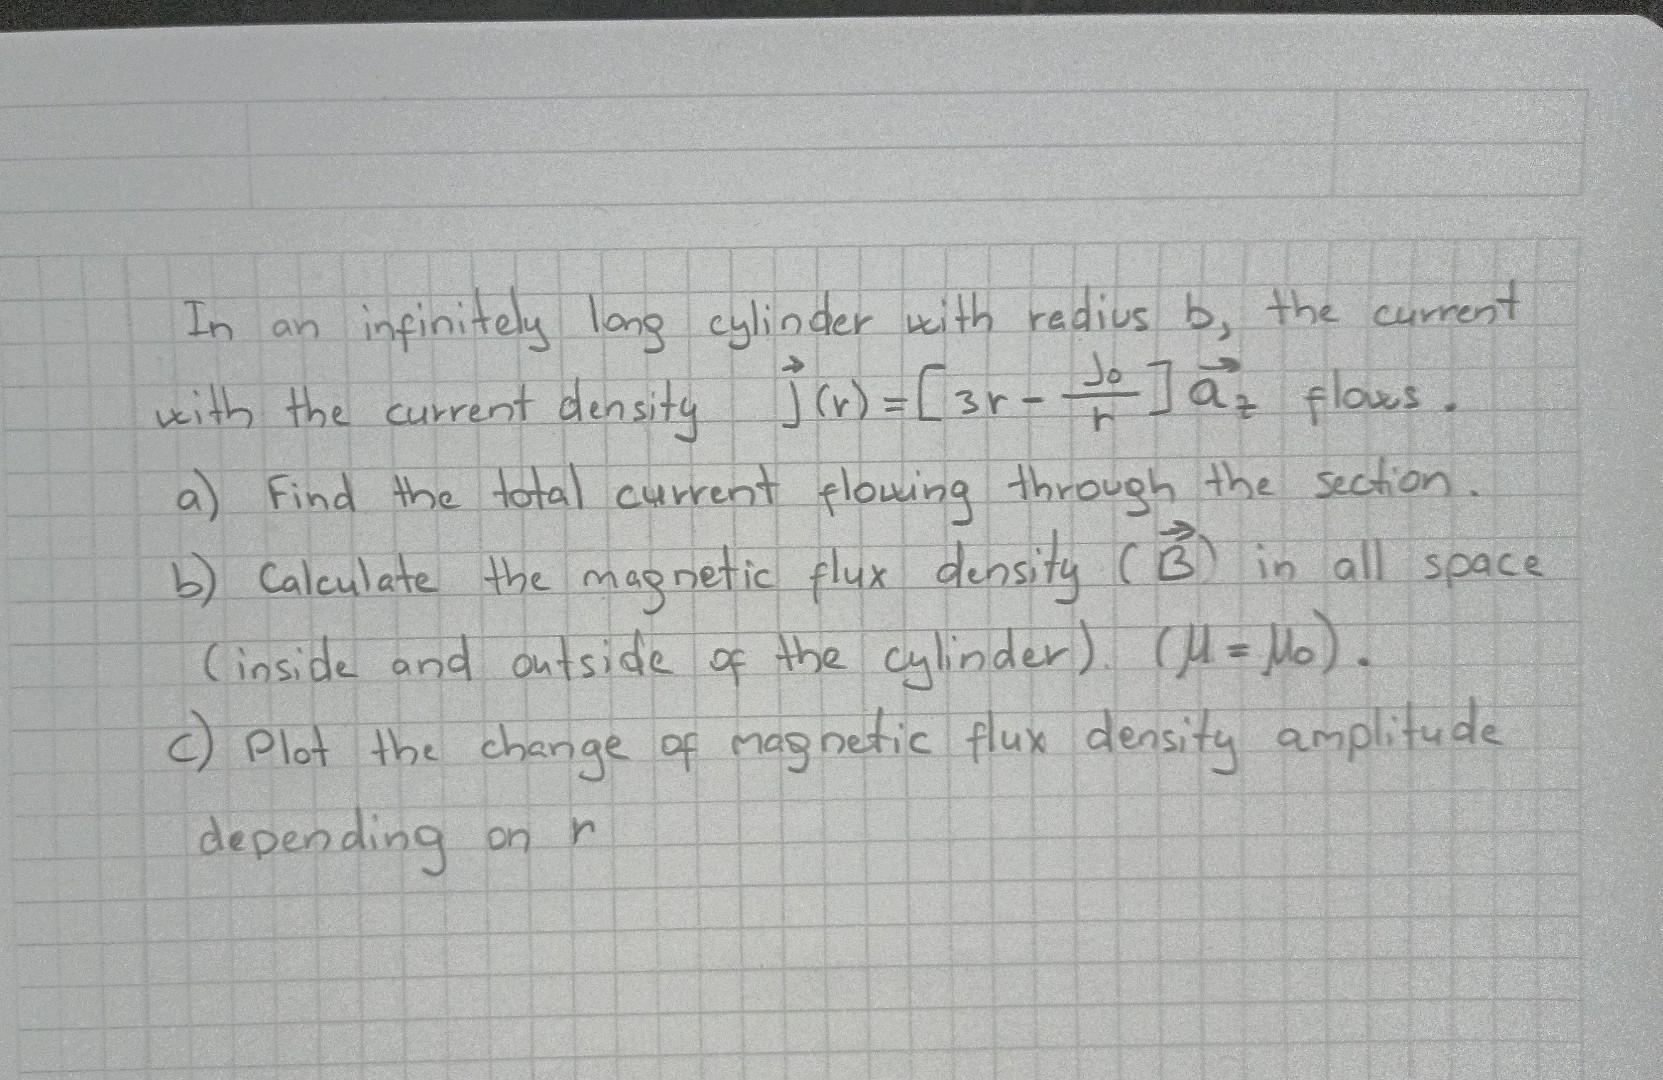 In an infinitely long cylinder with radius b, the current
with the current density J⃗(r) = [3r - J₀/r] a⃗z flows.
a) Find the total current flowing through the section.
b) Calculate the magnetic flux density (B⃗) in all space
(inside and outside of the cylinder). (μ = μ₀).
c) Plot the change of magnetic flux density amplitude
depending on r